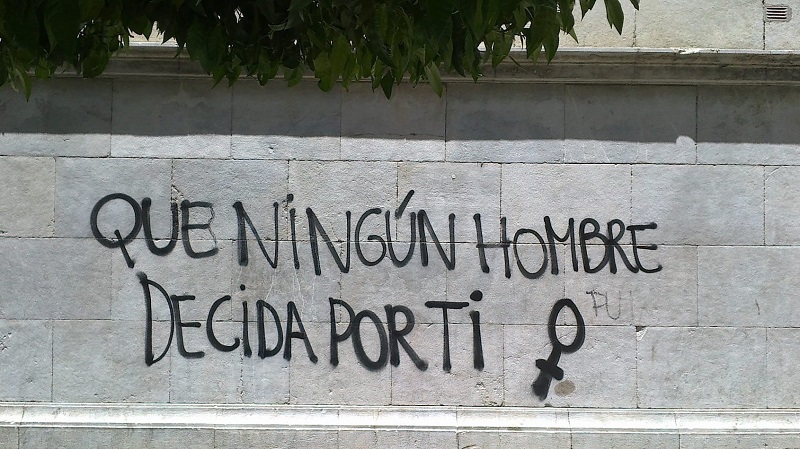 QUE NINGÚN HOMBRE
DECIDA POR TI